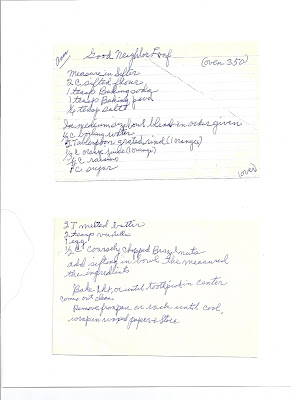 Good Neighbor Loaf
(oven 350)
Measure in Sifter
2 C sifted flour
1 teasp Baking soda
1 teasp Baking
½ teasp salt
In medium bowl blend in order given
½ C boiling water
2 Tablespoon grated rind (1 orange)
¼ C orange juice (1 orange)
½ C raisins
1 C sugar
(over)
2 T melted butter
2 teasp vanilla
1 egg
½ C coarsely chopped Brazil nuts
add sifting in bowl the measured
the ingredients
Bake 1 hr, or until toothpick in center
comes out clean
Remove from pan on rack until cool,
wrap in waxed paper & store